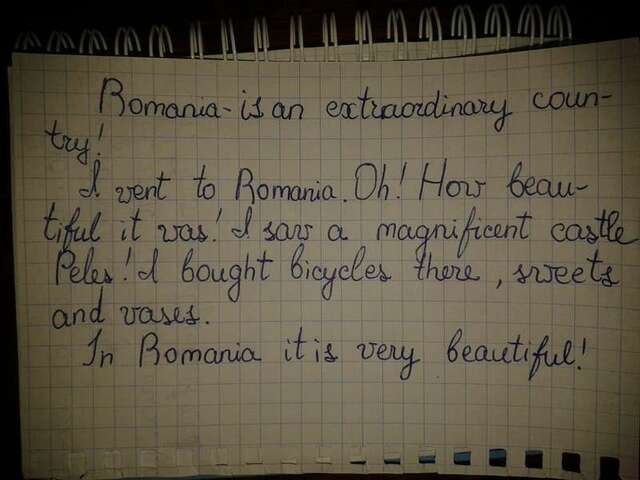 Romania - is an extraordinary coun-
try!
I went to Romania. Oh! How beau-
tiful it was! I saw a magnificent castle
Peles! I bought bicycles there, sweets
and vases.
In Romania it is very beautiful!